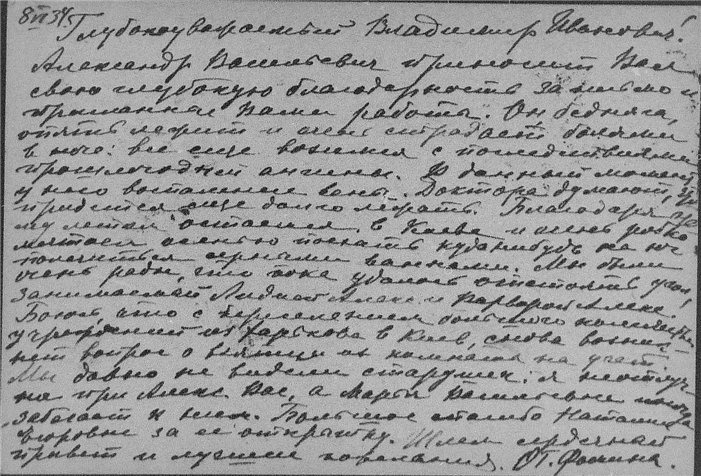 8 VI 34.
Глубокоуважаемый Владимир Иванович!
Александр Васильевич приносит Вам
свою глубокую благодарность за письмо и
присланные Вами работы. Он бедняга,
опять лежит и очень страдает болями
в ноге: все еще возится с последствиями
прошлогодней ангины. В данный момент
у него воспаление вены. Доктора думают, что
придется еще долго лежать. Благодаря
му летом остаемся в Киеве и очень робко
мечтаем осенью поехать куда нибудь на юг
полечиться серными ваннами. Мы были
очень рады, что пока удалось отстоять угол,
занимаемый Лидией Алекс. и Варварой Алекс.
Боюсь, что с переселением большого количества
учреждений из Харькова в Киев, снова возник-
нет вопрос о их комнате
Мы давно не видели старушек: я неотлуч-
но при Алекс. Вас., а Марья Васильевна иногда
забегает к ним. Большое спасибо Наталии
Егоровне за ее открытку. Шлем сердечный
привет и лучшие пожелания. О. Фомина